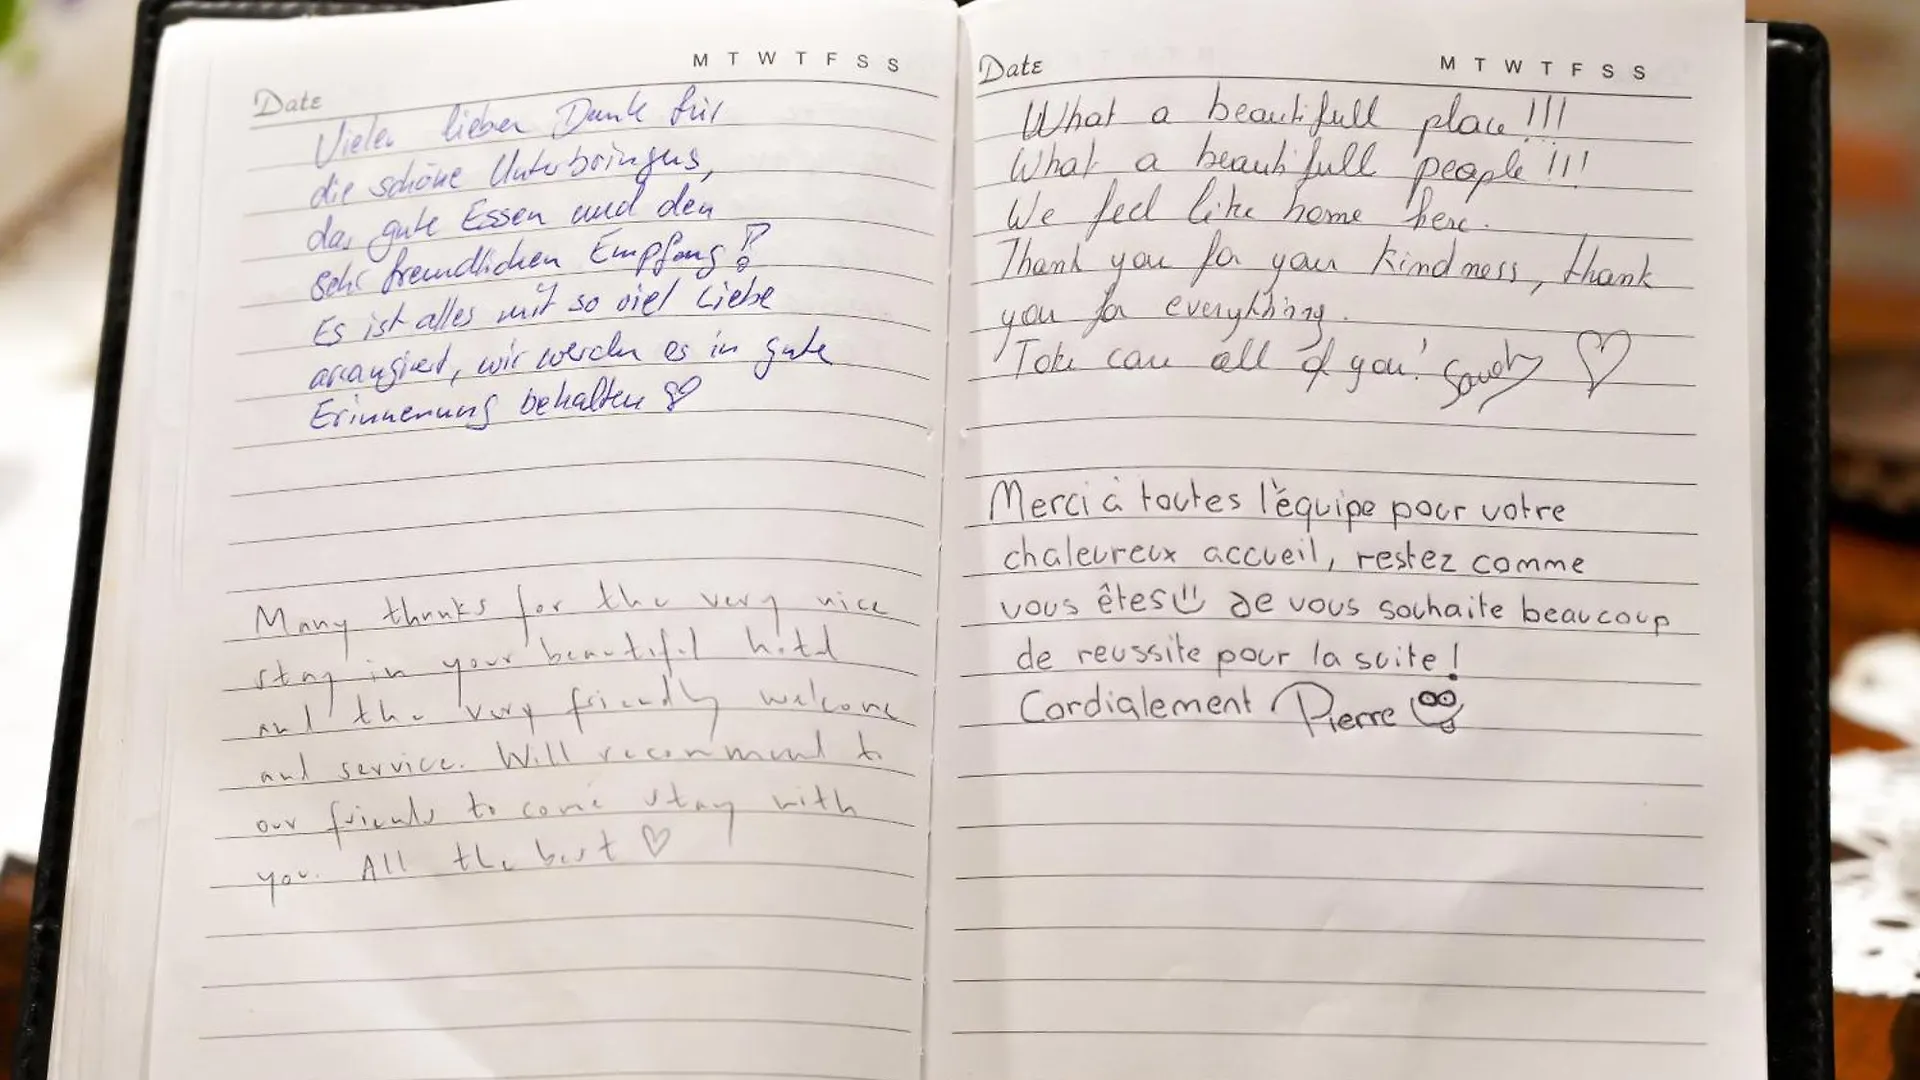 Date M T W T F S S
Vielen lieben Dank für
die schöne Unterbringung,
das gute Essen und den
sehr freundlichen Empfang!
Es ist alles mit so viel Liebe
arrangiert, wir werden es in gute
Erinnerung behalten
Many thanks for the very nice
stay in your beautiful hotel
and the very friendly welcome
and service. Will recommend to
our friends to come stay with
you. All the best ♡
Date M T W T F S S
What a beautifull place !!!
What a beautifull people !!!
We feel like home here.
Thank you for your kindness, thank
you for everything.
Take care all of you! ♡
Merci à toutes l'équipe pour votre
chaleureux accueil, restez comme
vous êtes Je vous souhaite beaucoup
de reussite pour la suite !
Cordialement Pierre